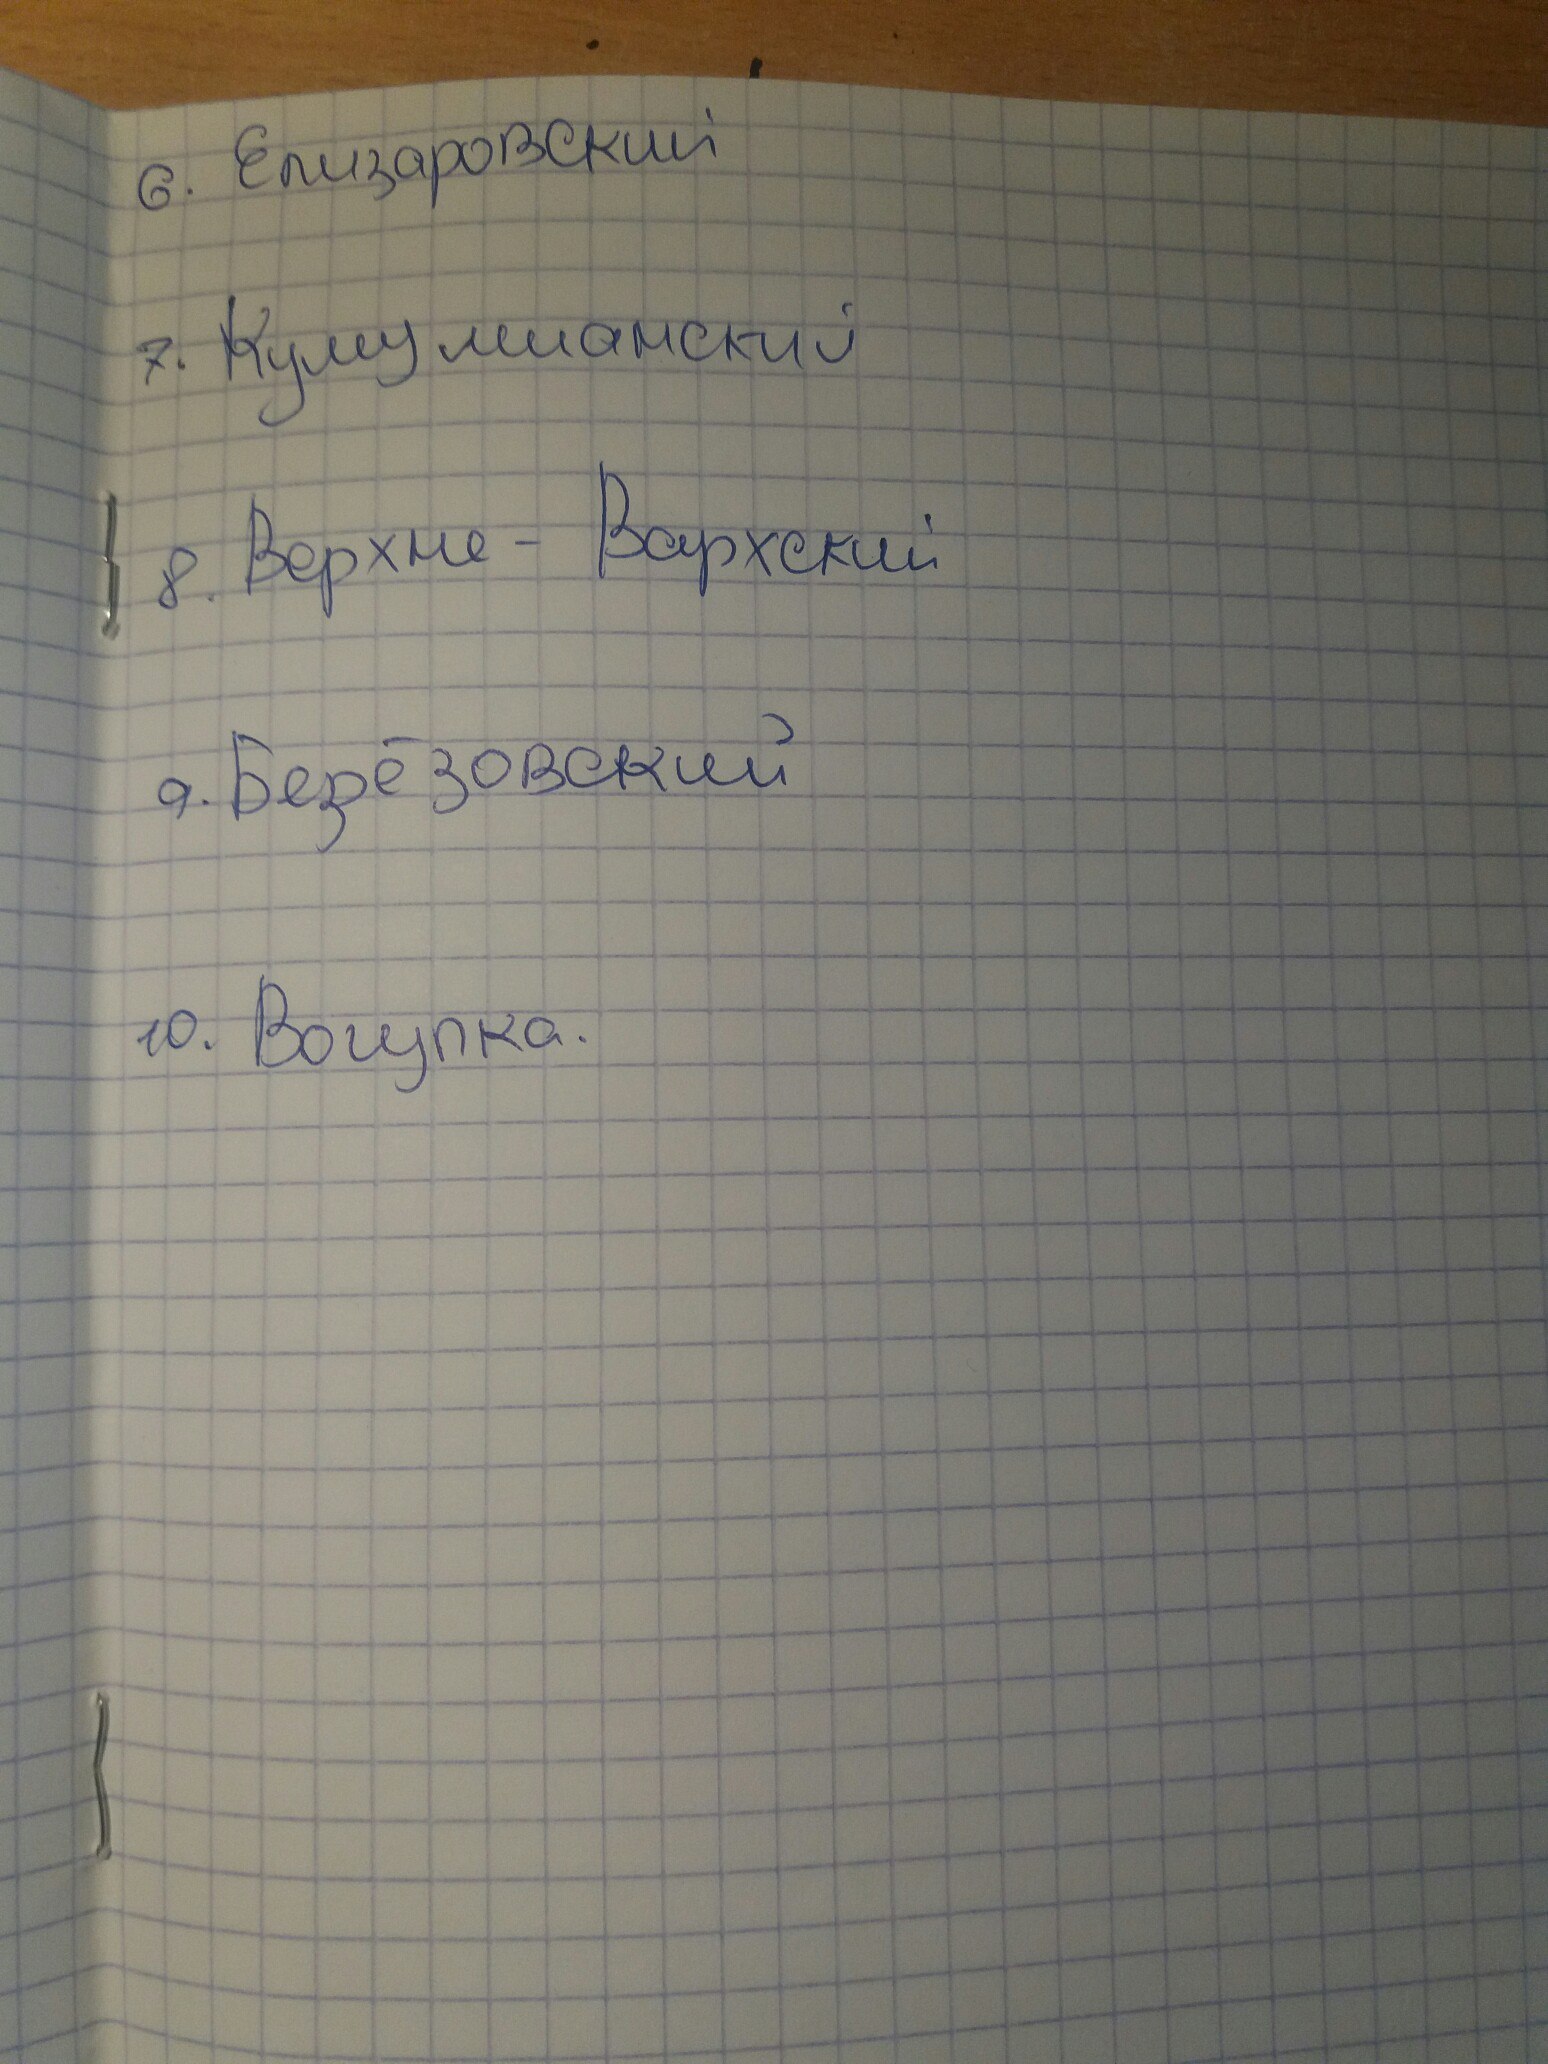 6. Елизаровский
7. Кумулианский
8. Верхне - Вархский
9. Берёзовский
10. Вогулка.